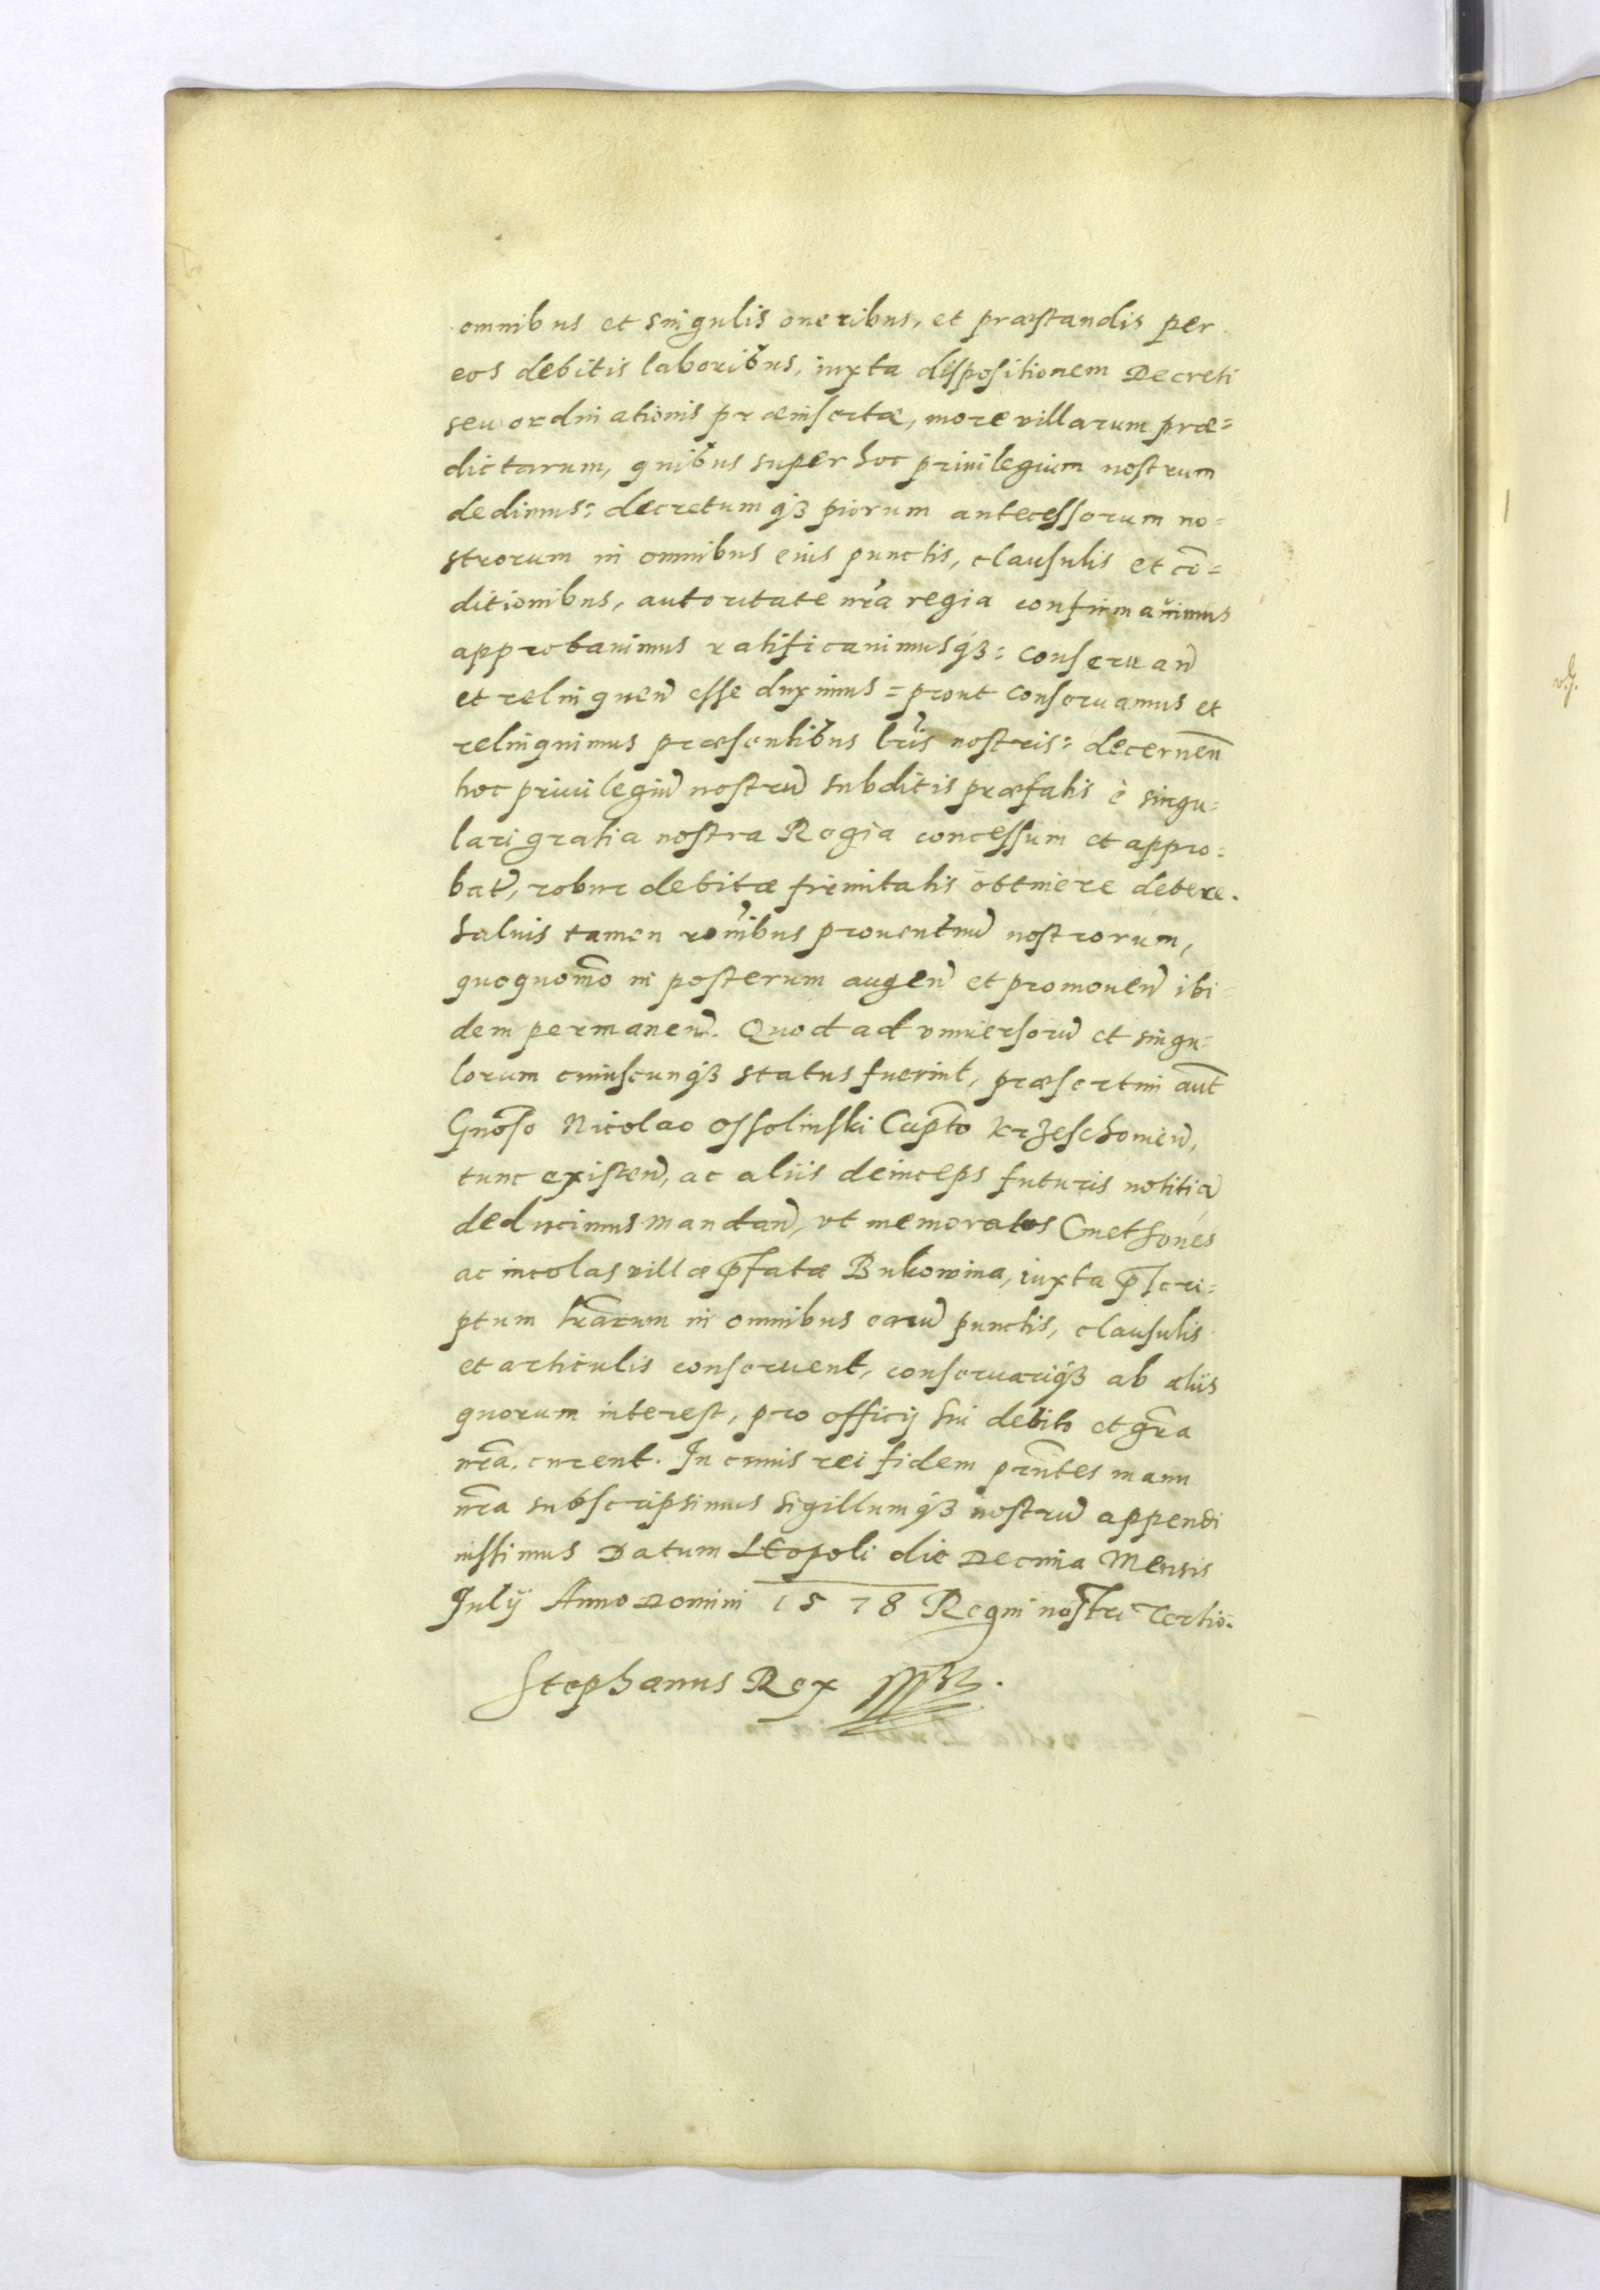 omnibus et singulis oneribus, et præstandis per
eos debitis laboribus, iuxta dispositionem Decreti
seu ordinationis præinsertæ, more villarum præ=
dictarum, quibus super hoc priuilegium nostrum
dedimus: decretumq3 piorum antecessorum no=
strorum in omnibus eius punctis, clausulis et cō=
ditionibus, autoritate nr̃a regia confirmauimus
approbauimus ratificauimusq3: conseruan̄
et relinquen̄ esse duximus = prout conseruamus et
relinquimus præsentibus lr̃is nostris: decernen̄
hoc priuilegiū nostrū subditis præfatis è singu=
lari gratia nostra Regia concessum et appro=
bat̄, robur debitæ firmitatis obtinere debere.
Saluis tamen ron̄ibus prouentuū nostrorum,
quoquom̄o in posterum augen̄ et promouen̄ ibi=
dem permanen̄. Quod ad vniuersorū et singu=
lorum cuiuscunq3 status fuerint, præsertim aut̄
Gnōso Nicolao Ossolinski Capt̄o Krzeschouien̄,
tunc existen̄, ac aliis deinceps futuris notitiā
deducimus mandan̄, vt memoratos Cmethones
ac incolas villæ p̄fatæ Bukowina, iuxta p̄scri=
ptum lr̃arum in omnibus earū punctis, clausulis
et articulis conseruent, conseruariq3 ab aliis
quorum interest, pro officij sui debito et gr̃a
nr̃a. curent. In cuius rei fidem pn̄tes manu
nr̃a subscripsimus sigillumq3 nostrū appendi
iussimus Datum Leopoli die Decima Mensis
Julij Anno Domini 1578 Regni nostri Tertio.
Stephanus Rex